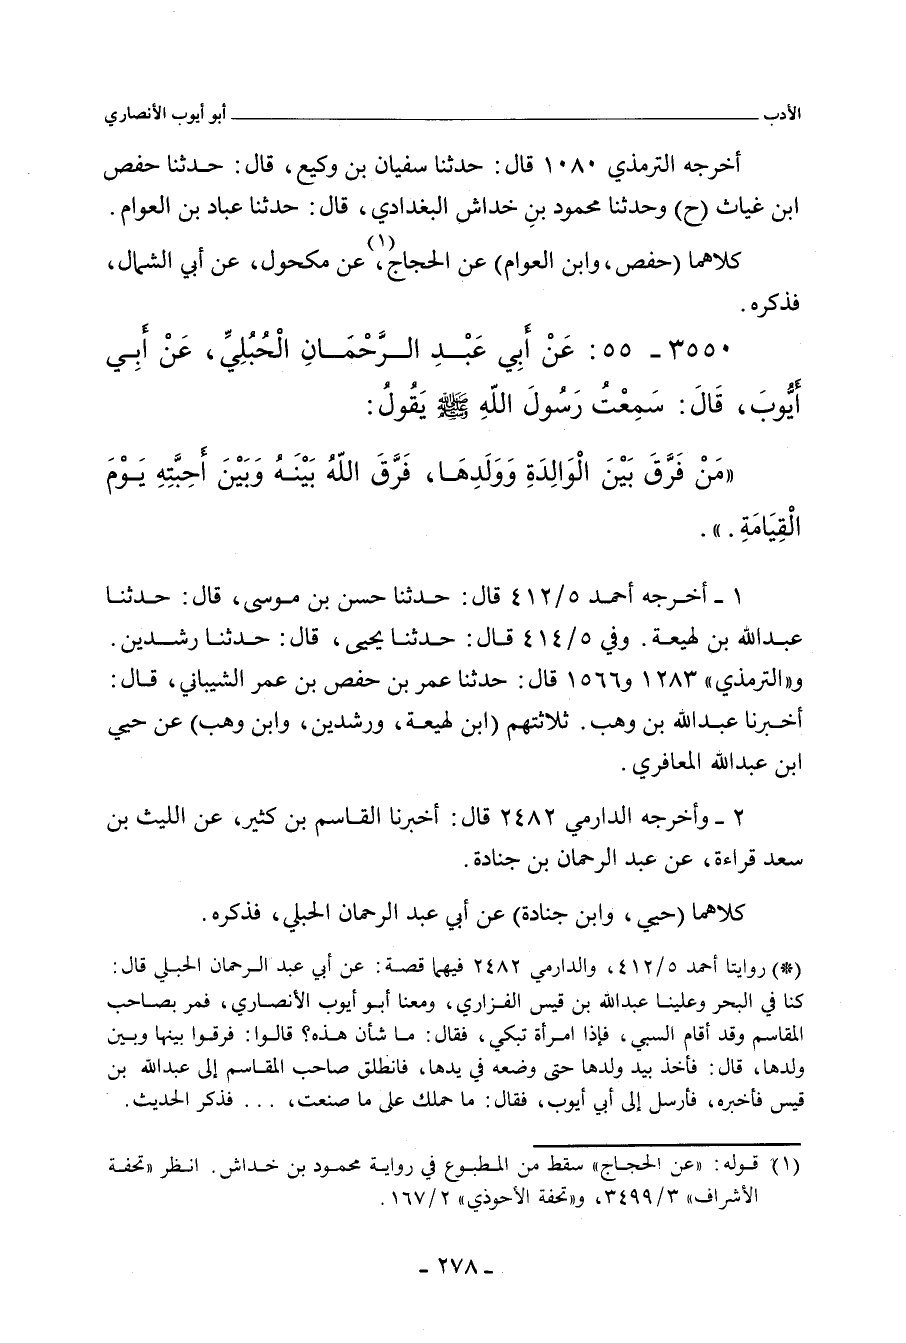 الأدب ــــــــــ أبو أيوب الأنصاري
أخرجه الترمذي ١٠٨٠ قال: حدثنا سفيان بن وكيع، قال: حدثنا حفص
ابن غياث (ح) وحدثنا محمود بن خداش البغدادي، قال: حدثنا عباد بن العوام.
كلاهما (حفص، وابن العوام) عن الحجاج(١)، عن مكحول، عن أبي الشمال،
فذكره.
٣٥٥٠ ـ ٥٥: عَنْ أَبِي عَبْدِ الرَّحْمَانِ الْحُبُلِيِّ، عَنْ أَبِي
أَيُّوبَ، قَالَ: سَمِعْتُ رَسُولَ اللّهِ ﷺ يَقُولُ:
«مَنْ فَرَّقَ بَيْنَ الْوَالِدَةِ وَوَلَدِهَا، فَرَّقَ اللّهُ بَيْنَهُ وَبَيْنَ أَحِبَّتِهِ يَوْمَ
الْقِيَامَةِ.».
١ ـ أخرجه أحمد ٤١٢/٥ قال: حدثنا حسن بن موسى، قال: حدثنا
عبدالله بن لهيعة. وفي ٤١٤/٥ قال: حدثنا يحيى، قال: حدثنا رشدين.
و«الترمذي» ١٢٨٣ و١٥٦٦ قال: حدثنا عمر بن حفص بن عمر الشيباني، قال:
أخبرنا عبدالله بن وهب. ثلاثتهم (ابن لهيعة، ورشدين، وابن وهب) عن حيي
ابن عبدالله المعافري.
٢ ـ وأخرجه الدارمي ٢٤٨٢ قال: أخبرنا القاسم بن كثير، عن الليث بن
سعد قراءة، عن عبد الرحمان بن جنادة.
كلاهما (حيي، وابن جنادة) عن أبي عبد الرحمان الحبلي، فذكره.
(*) روايتا أحمد ٤١٢/٥، والدارمي ٢٤٨٢ فيهما قصة: عن أبي عبد الرحمان الحبلي قال:
كنا في البحر وعلينا عبدالله بن قيس الفزاري، ومعنا أبو أيوب الأنصاري، فمر بصاحب
المقاسم وقد أقام السبي، فإذا امرأة تبكي، فقال: ما شأن هذه؟ قالوا: فرقوا بينها وبين
ولدها، قال: فأخذ بيد ولدها حتى وضعه في يدها، فانطلق صاحب المقاسم إلى عبدالله بن
قيس فأخبره، فأرسل إلى أبي أيوب، فقال: ما حملك على ما صنعت، ... فذكر الحديث.
(١) قوله: «عن الحجاج» سقط من المطبوع في رواية محمود بن خداش. انظر «تحفة
الأشراف» ٣٤٩٩/٣، و«تحفة الأحوذي» ١٦٧/٢.
ـ ٢٧٨ ـ